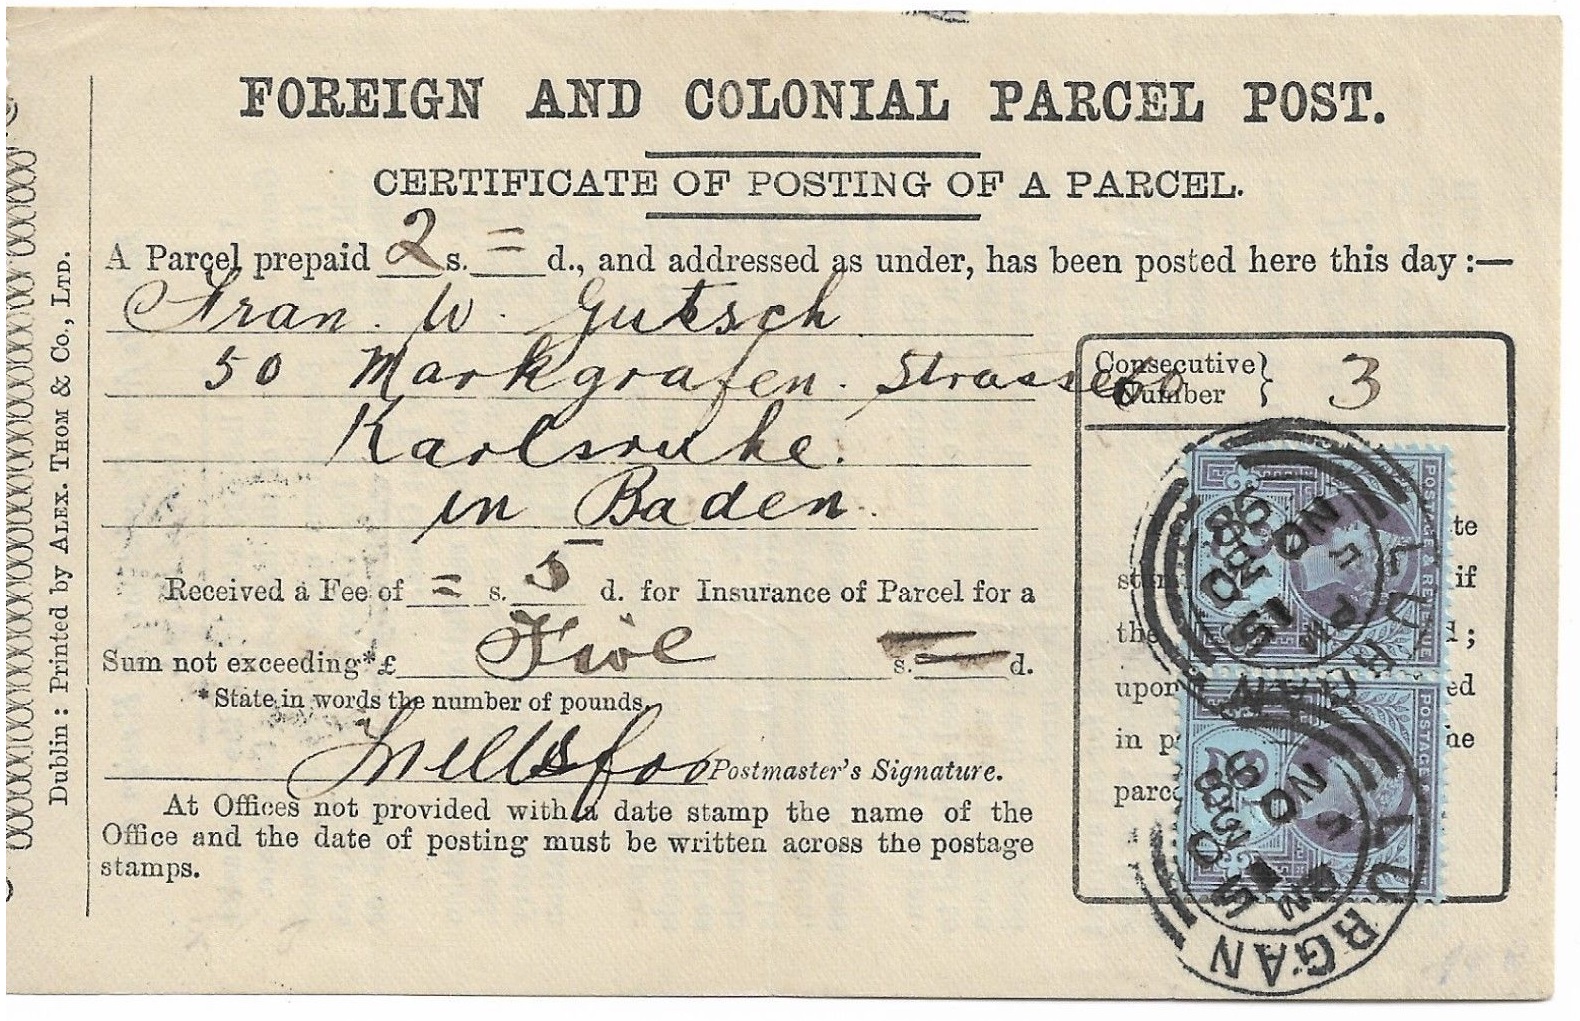 FOREIGN AND COLONIAL PARCEL POST.
CERTIFICATE OF POSTING OF A PARCEL.
A Parcel prepaid 2 s. = d., and addressed as under, has been posted here this day :—
Fran. W. Gutsch
50 Markgrafen. Strasse
Karlsruhe.
in Baden.
Consecutive Number } 3
te
if
the
;
upon
ed
in
he
Received a Fee of = s. 5 d. for Insurance of Parcel for a
Sum not exceeding* £ Five s. d.
* State in words the number of pounds.
Postmaster's Signature.
At Offices not provided with a date stamp the name of the
Office and the date of posting must be written across the postage
stamps.
Dublin : Printed by ALEX. THOM & Co., LTD.
POSTAGE & REVENUE
POSTAGE
LURGAN
5 PM
NO 15
98
LURGAN
5 PM
NO 15
98